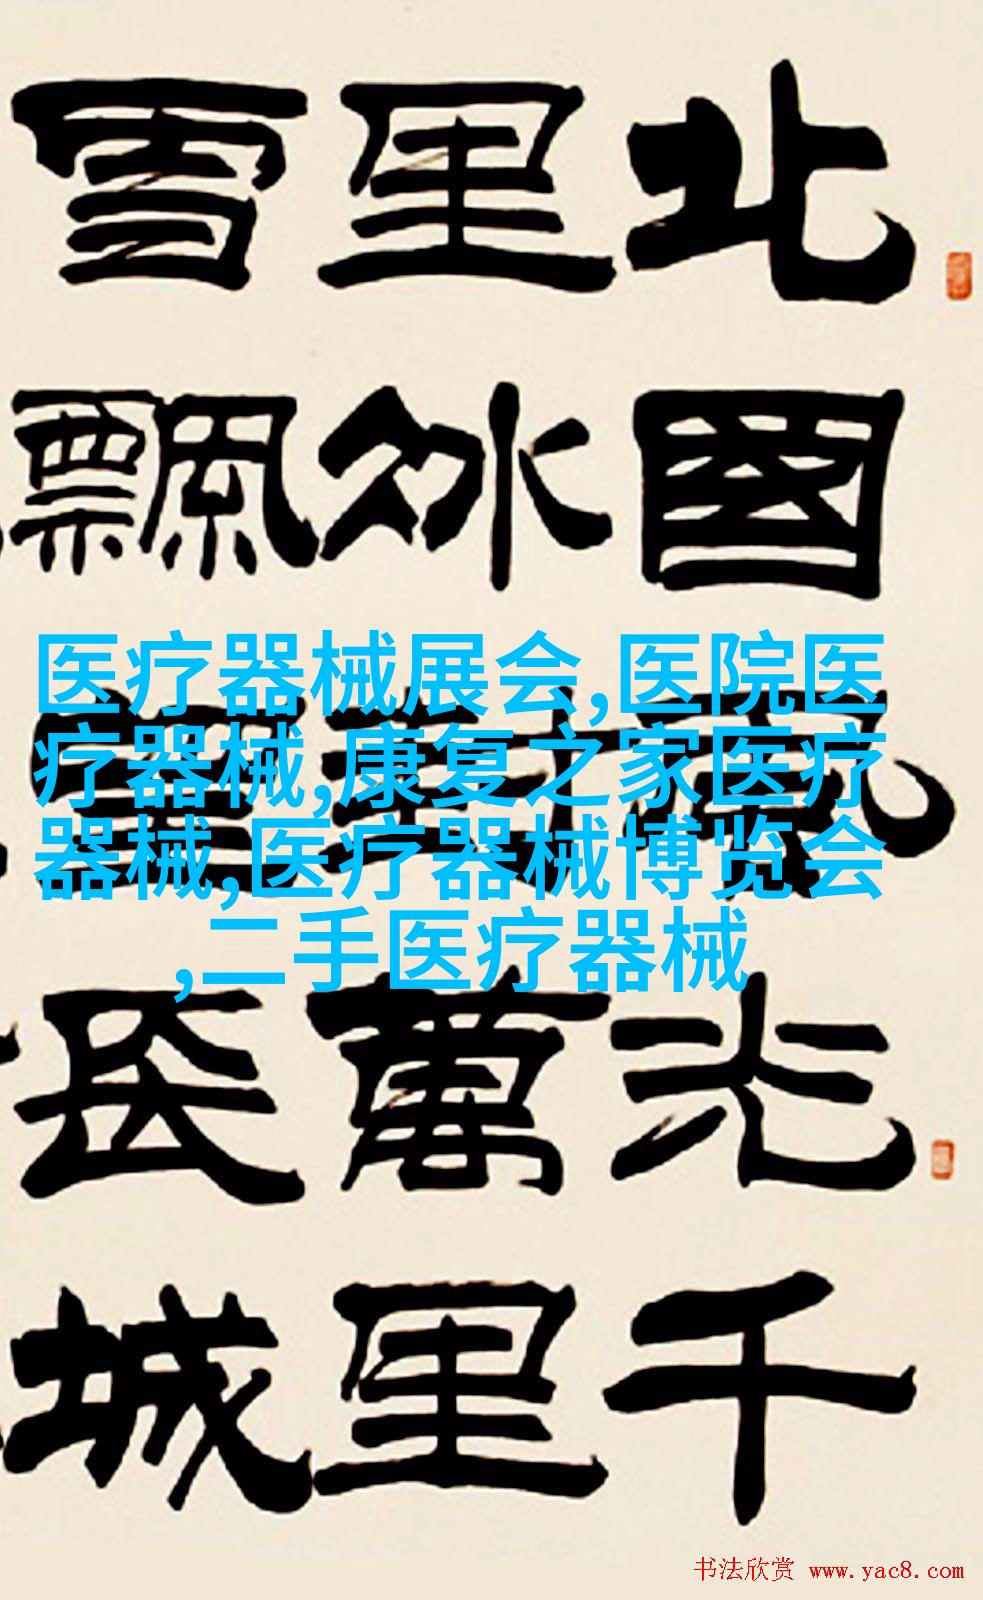 北國風光千
里冰封萬里
雪飄望長城
医疗器械展会,医院医
疗器械,康复之家医疗
器械,医疗器械博览会
,二手医疗器械
书法欣赏 www.yac8.com